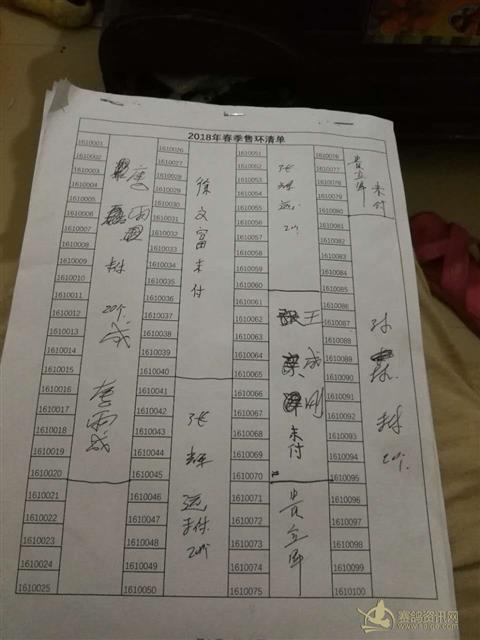 2018年春季售环清单
1610001
1610002
1610003
1610004
1610005
1610006
1610007
1610008
1610009
1610010
1610011
1610012
1610013
1610014
1610015
1610016
1610017
1610018
1610019
1610020
1610021
1610022
1610023
1610024
1610025
20个
李雨成
1610026
1610027
1610028
1610029
1610030
1610031
1610032
1610033
1610034
1610035
1610036
1610037
1610038
1610039
1610040
1610041
1610042
1610043
1610044
1610045
1610046
1610047
1610048
1610049
1610050
徐文富未付
张辉远
未付
20个
1610051
1610052
1610053
1610054
1610055
1610056
1610057
1610058
1610059
1610060
1610061
1610062
1610063
1610064
1610065
1610066
1610067
1610068
1610069
1610070
1610071
1610072
1610073
1610074
1610075
张辉远
王成刚
未付
贵立军
1610076
1610077
1610078
1610079
1610080
1610081
1610082
1610083
1610084
1610085
1610086
1610087
1610088
1610089
1610090
1610091
1610092
1610093
1610094
1610095
1610096
1610097
1610098
1610099
1610100
贵立军
未付
20个
赛鸽资讯网